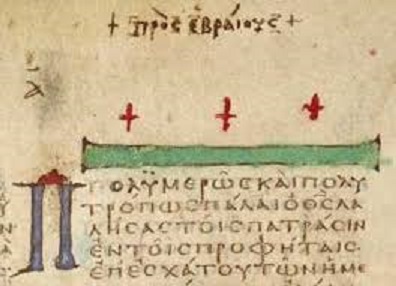 + πρὸς ἑβραίους +
ᾱ
ΠΟΛΫΜΕΡῶϹΚΑῚΠΟΛΥ
ΤΡΌΠΩϹΠΆΛΑΙὉΘϹΛΑ
ΛΉϹΑϹΤΟῖϹΠΑΤΡΆϹΙΝ
ἘΝΤΟῖϹΠΡΟΦΉΤΑΙϹ·
ἘΠΕϹΧΆΤΟΥΤῶΝἩΜΕ